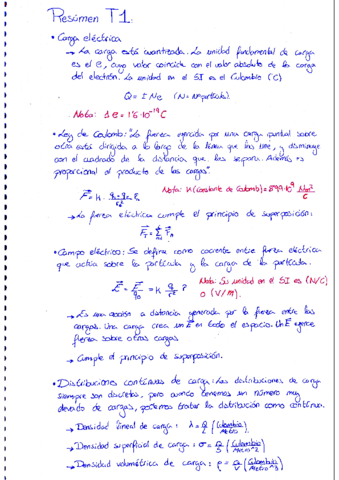 Resúmen T1:
• Carga eléctrica
→ La carga está cuantizada. La unidad fundamental de carga
es el e, cuyo valor coincide con el valor absoluto de la carga
del electrón. La unidad en el SI es el Culombio (C)
Q = ± Ne (N = Nº partículas).
Nota: 1 e = 1'6·10⁻¹⁹ C
• Ley de Coulomb: "La fuerza ejercida por una carga puntual sobre
otra está dirigida a lo largo de la línea que las une, y disminuye
con el cuadrado de la distancia que les separa. Además es
proporcional al producto de las cargas".
Nota: K (Constante de Coulomb) = 8'99·10⁹ Nm²/C
→ La fuerza eléctrica cumple el principio de superposición:
• Campo eléctrico: Se define como cociente entre fuerza eléctrica
que actúa sobre la partícula y la carga de la partícula.
Nota: Su unidad en el SI es (N/C)
o (V/m).
→ Es una acción a distancia generada por la fuerza entre las
cargas. Una carga crea un E en todo el espacio. Un E ejerce
fuerza sobre otras cargas
→ Cumple el principio de superposición.
• Distribuciones contínuas de carga: Las distribuciones de carga
siempre son discretas, pero cuando tenemos un número muy
elevado de cargas, podemos tratar la distribución como contínua.
→ Densidad lineal de carga: λ = Q/L (Culombio/Metro)
→ Densidad superficial de carga: σ = Q/S (Culombio/Metro^2)
→ Densidad volumétrica de carga: ρ = Q/V (Culombio/Metro^3)